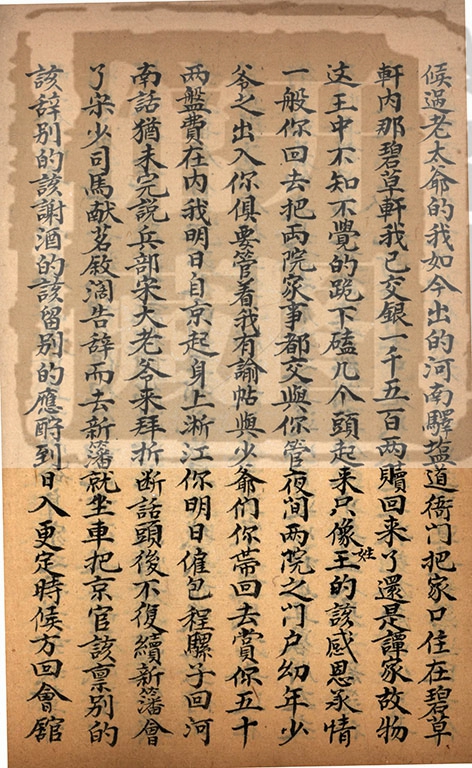 候過老太爺的我如今出的河南驛塩道衙門把家口住在碧草
軒内那碧草軒我已交銀一千五百両贖回来了還是譚家故物
这王中不知不覺的跪下磕几个頭起来只像姓王的該感恩承情
一般你回去把両院家事都交與你管夜间両院之門户幼年少
爷之出入你俱要管着我有諭帖與少爺们你帶回去賞你五十
両盤費在内我明日自京起身上浙江你明日僱包程騾子回河
南話猶未完說兵部宋大老爷来拜折断話頭後不復續新籓會
了宋少司馬献茗敘濶告辞而去新籓就坐車把京官該禀别的
該辞别的該謝酒的該留别的應酧到日入更定時候方回會舘